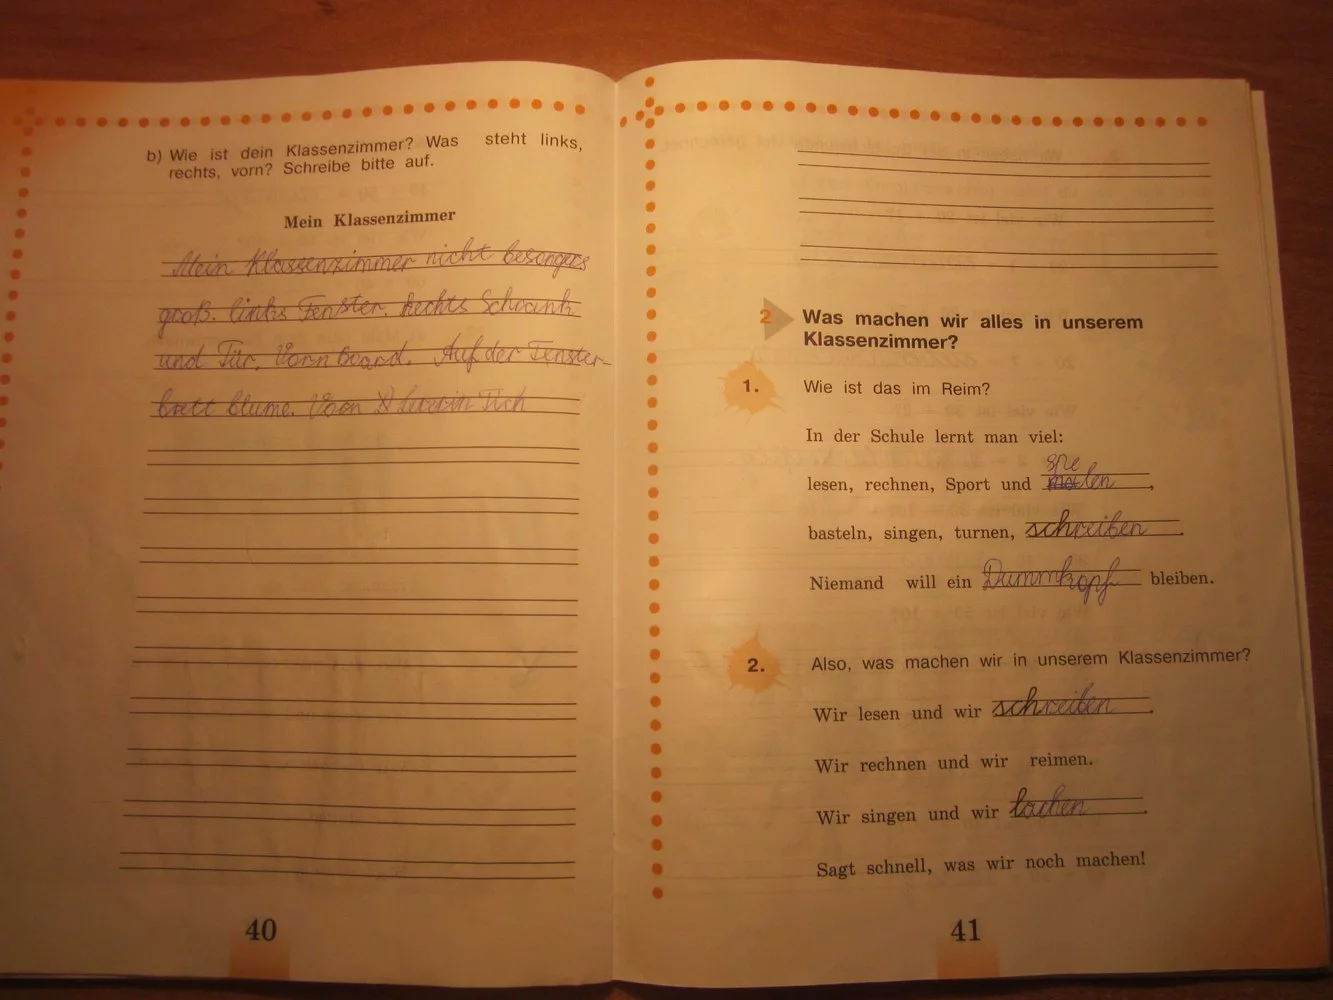 b) Wie ist dein Klassenzimmer? Was steht links,
rechts, vorn? Schreibe bitte auf.
Mein Klassenzimmer
Mein Klassenzimmer nicht besongers
groß. links Fenster. Rechts Schrank
und Tür. Vorn Board. Auf der Fenster-
brett blume. Vorn Tich
40
2 Was machen wir alles in unserem
Klassenzimmer?
1. Wie ist das im Reim?
In der Schule lernt man viel:
spie
lesen, rechnen, Sport und malen,
basteln, singen, turnen, schreiben.
Niemand will ein Dummkopf bleiben.
2. Also, was machen wir in unserem Klassenzimmer?
Wir lesen und wir schreiben.
Wir rechnen und wir reimen.
Wir singen und wir lachen.
Sagt schnell, was wir noch machen!
41